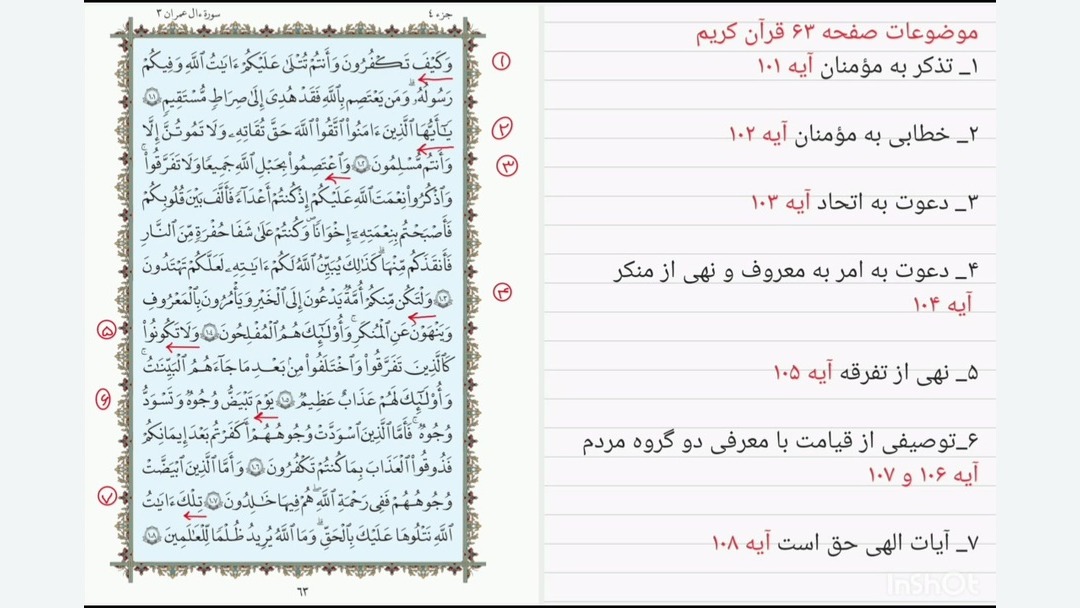 موضوعات صفحه ۶۳ قرآن کریم
۱_ تذکر به مؤمنان آیه ۱۰۱
۲_ خطابی به مؤمنان آیه ۱۰۲
۳_ دعوت به اتحاد آیه ۱۰۳
۴_ دعوت به امر به معروف و نهی از منکر
آیه ۱۰۴
۵_ نهی از تفرقه آیه ۱۰۵
۶_توصیفی از قیامت با معرفی دو گروه مردم
آیه ۱۰۶ و ۱۰۷
۷_ آیات الهی حق است آیه ۱۰۸
InShOt
جزء ٤
سورة ءال عمران ٣
۱ وَكَيْفَ تَكْفُرُونَ وَأَنتُمْ تُتْلَىٰ عَلَيْكُمْ ءَايَٰتُ ٱللَّهِ وَفِيكُمْ
رَسُولُهُۥ ۗ وَمَن يَعْتَصِم بِٱللَّهِ فَقَدْ هُدِىَ إِلَىٰ صِرَٰطٍ مُّسْتَقِيمٍ ١٠١
۲ يَٰٓأَيُّهَا ٱلَّذِينَ ءَامَنُوا۟ ٱتَّقُوا۟ ٱللَّهَ حَقَّ تُقَاتِهِۦ وَلَا تَمُوتُنَّ إِلَّا
۳ وَأَنتُم مُّسْلِمُونَ ١٠٢ وَٱعْتَصِمُوا۟ بِحَبْلِ ٱللَّهِ جَمِيعًا وَلَا تَفَرَّقُوا۟ ۚ
وَٱذْكُرُوا۟ نِعْمَتَ ٱللَّهِ عَلَيْكُمْ إِذْ كُنتُمْ أَعْدَآءً فَأَلَّفَ بَيْنَ قُلُوبِكُمْ
فَأَصْبَحْتُم بِنِعْمَتِهِۦٓ إِخْوَٰنًا وَكُنتُمْ عَلَىٰ شَفَا حُفْرَةٍ مِّنَ ٱلنَّارِ
فَأَنقَذَكُم مِّنْهَا ۗ كَذَٰلِكَ يُبَيِّنُ ٱللَّهُ لَكُمْ ءَايَٰتِهِۦ لَعَلَّكُمْ تَهْتَدُونَ
۴ ١٠٣ وَلْتَكُن مِّنكُمْ أُمَّةٌ يَدْعُونَ إِلَى ٱلْخَيْرِ وَيَأْمُرُونَ بِٱلْمَعْرُوفِ
وَيَنْهَوْنَ عَنِ ٱلْمُنكَرِ ۚ وَأُو۟لَٰٓئِكَ هُمُ ٱلْمُفْلِحُونَ ١٠٤ وَلَا تَكُونُوا۟ ۵
كَٱلَّذِينَ تَفَرَّقُوا۟ وَٱخْتَلَفُوا۟ مِنۢ بَعْدِ مَا جَآءَهُمُ ٱلْبَيِّنَٰتُ ۚ
وَأُو۟لَٰٓئِكَ لَهُمْ عَذَابٌ عَظِيمٌ ١٠٥ يَوْمَ تَبْيَضُّ وُجُوهٌ وَتَسْوَدُّ ۶
وُجُوهٌ ۚ فَأَمَّا ٱلَّذِينَ ٱسْوَدَّتْ وُجُوهُهُمْ أَكَفَرْتُم بَعْدَ إِيمَٰنِكُمْ
فَذُوقُوا۟ ٱلْعَذَابَ بِمَا كُنتُمْ تَكْفُرُونَ ١٠٦ وَأَمَّا ٱلَّذِينَ ٱبْيَضَّتْ
وُجُوهُهُمْ فَفِى رَحْمَةِ ٱللَّهِ هُمْ فِيهَا خَٰلِدُونَ ١٠٧ تِلْكَ ءَايَٰتُ ۷
ٱللَّهِ نَتْلُوهَا عَلَيْكَ بِٱلْحَقِّ ۗ وَمَا ٱللَّهُ يُرِيدُ ظُلْمًا لِّلْعَٰلَمِينَ ١٠٨
٦٣